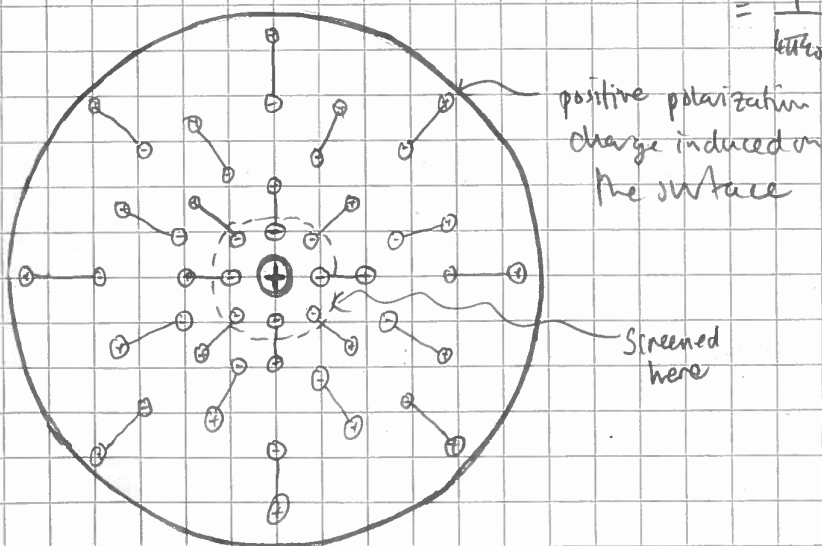 = 1
4πε₀
positive polarization
charge induced on
the surface
Screened
here